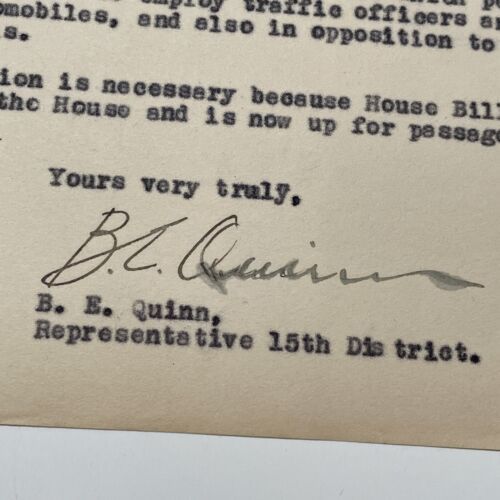 employ traffic officers
omobiles, and also in opposition to
s.
ion is necessary because House Bill
the House and is now up for passage
Yours very truly,
B. E. Quinn
B. E. Quinn,
Representative 15th District.